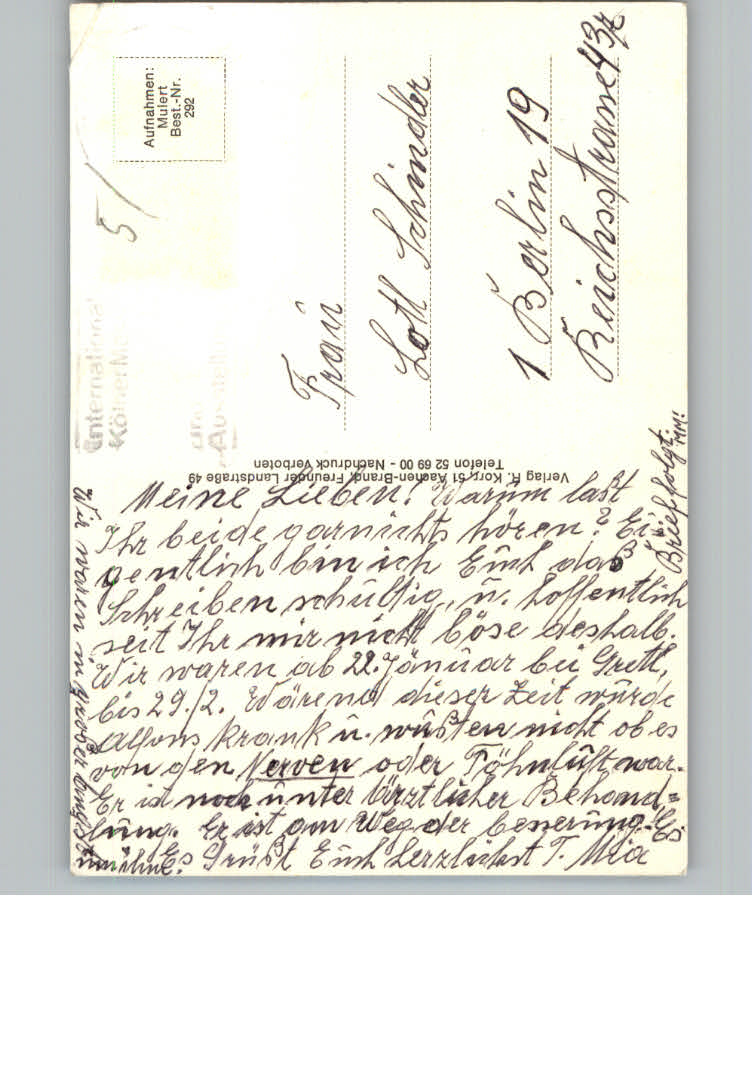 Aufnahmen:
Mulert
Best.-Nr.
292
5/
Internationa
Kölner Me
Frau
Lotl Schindler
1 Berlin 19
Reichsstrasse 43
Verlag K. Korr, 51 Aachen-Brand, Freunder Landstraße 49
Telefon 52 69 00 - Nachdruck verboten
Meine Lieben! Warum last
Ihr beide garnichts hören? Ei-
gentlich bin ich Euch das
Schreiben schultig, u. hoffentlich
seit Ihr mir nicht böse deshalb.
Wir waren ab 22. Jänuar bei Gretl,
bis 29./2. Wärend dieser Zeit wurde
Alfons krank u. wußten nicht ob es
von den Nerven oder Föhnluft war.
Er ist noch unter ärztlicher Behand=
lung. Er ist am Weg der besserung. Es
Grüßt Euch herzlichst T. Mia
Wir waren in großer Angst
um ihn.
Brief folgt.